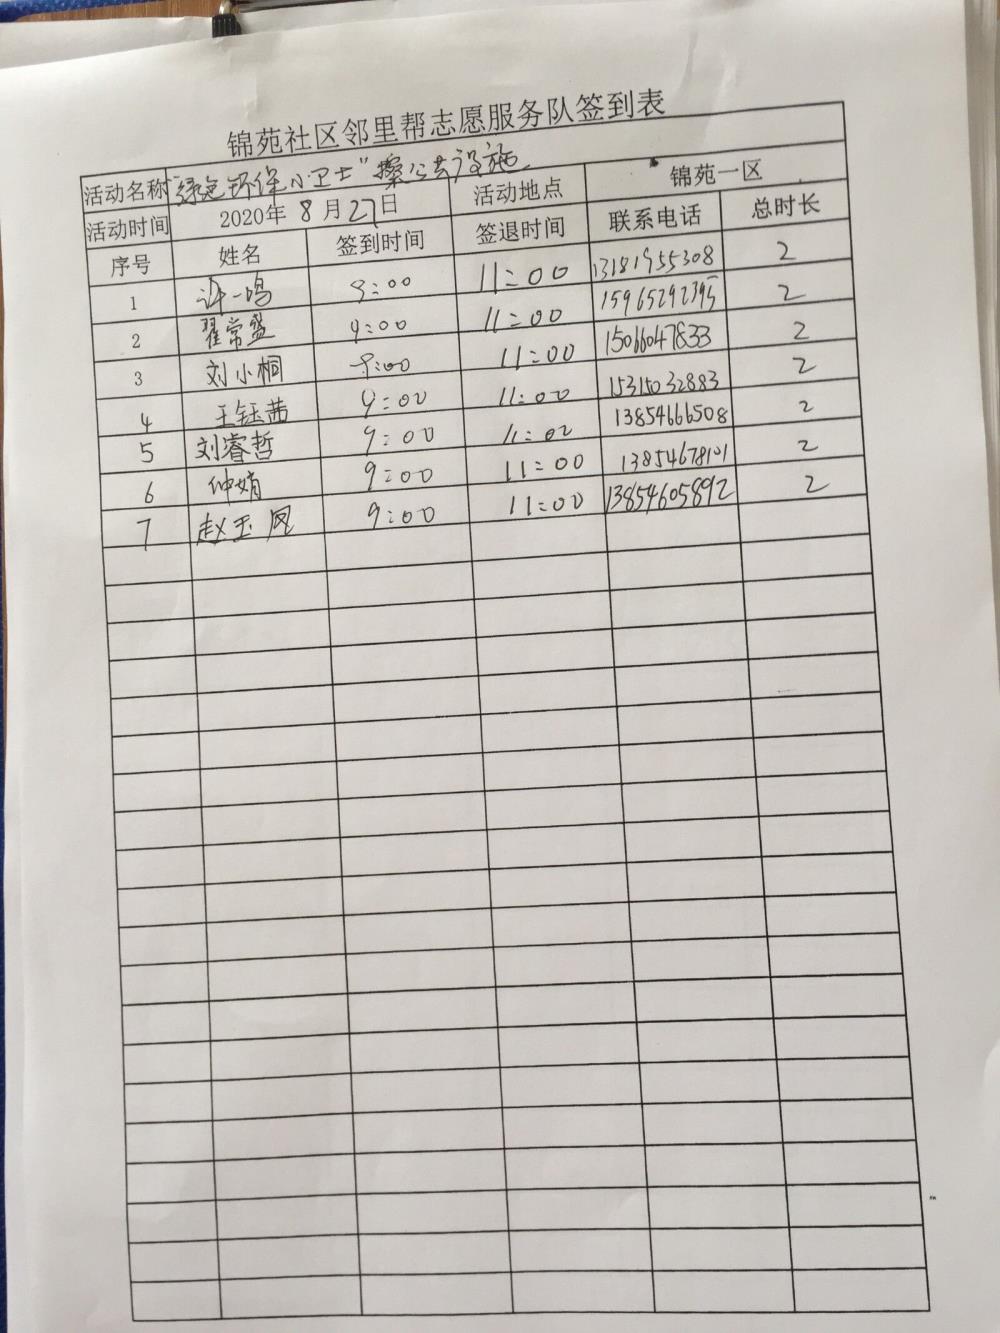 锦苑社区邻里帮志愿服务队签到表
活动名称 "绿色环保小卫士"擦公共设施
活动时间 2020年8月27日 活动地点 锦苑一区
序号 姓名 签到时间 签退时间 联系电话 总时长
1 许一鸣 9:00 11:00 13181955308 2
2 翟常盛 9:00 11:00 15965292395 2
3 刘小桐 9:00 11:00 15066047833 2
4 王钰茜 9:00 11:00 15315032883 2
5 刘睿哲 9:00 11:00 13854666508 2
6 仲娟 9:00 11:00 13854678101 2
7 赵玉凤 9:00 11:00 13854605892 2